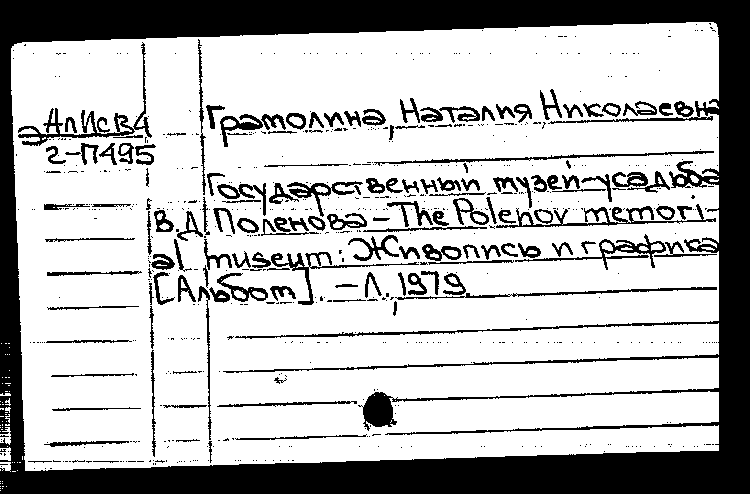 аАлИсВ4
2-П495
Грамолина, Наталия Николаевна
Государственный музей-усадьба
В.Д. Поленова = The Polenov memori-
al museum: Живопись и графика
[Альбом]. - Л., 1979.